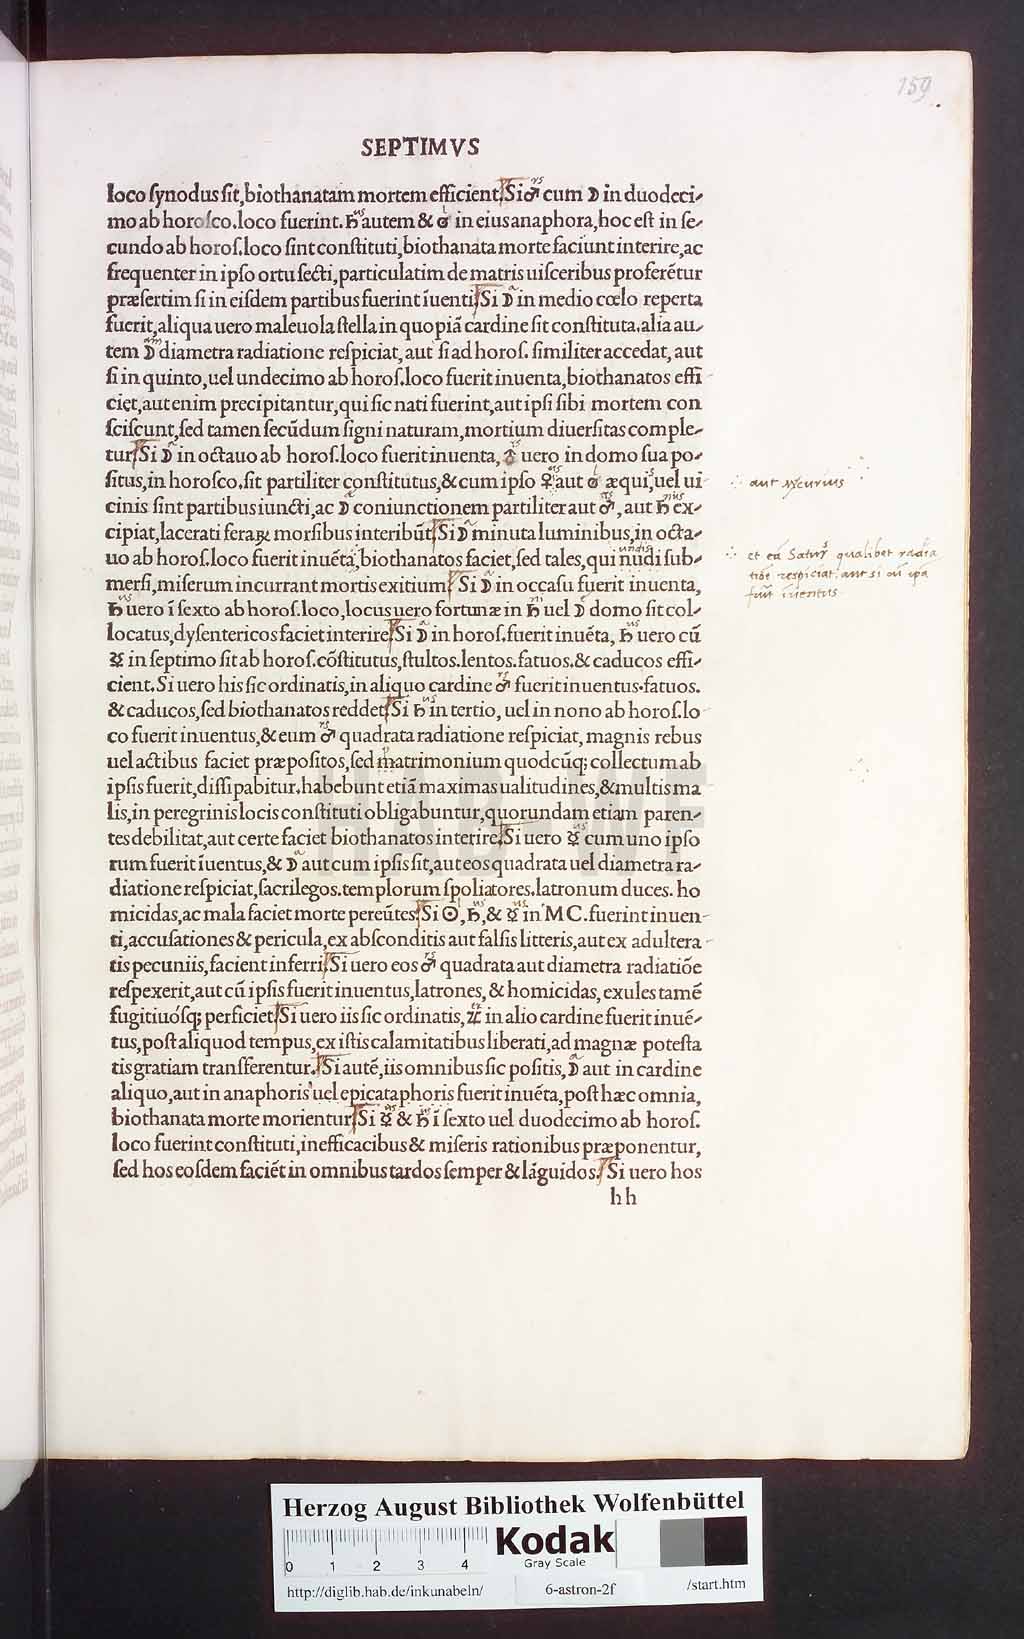 159
SEPTIMVS
loco ſynodus ſit, biothanatam mortem efficient. Si ♂ cum ☽ in duodeci-
mo ab horoſco. loco fuerint. ♄ autem & ♂ in eius anaphora, hoc eſt in ſe-
cundo ab horoſ. loco ſint conſtituti, biothanata morte faciunt interire, ac
frequenter in ipſo ortu ſecti, particulatim de matris uiſceribus proferētur
præſertim ſi in eiſdem partibus fuerint īuenti. Si ☽ in medio cœlo reperta
fuerit, aliqua uero maleuola ſtella in quopiā cardine ſit conſtituta. alia au-
tem ☽ diametra radiatione reſpiciat, aut ſi ad horoſ. ſimiliter accedat, aut
ſi in quinto, uel undecimo ab horoſ. loco fuerit inuenta, biothanatos effi-
ciet, aut enim precipitantur, qui ſic nati fuerint, aut ipſi ſibi mortem con
ſciſcunt, ſed tamen ſecūdum ſigni naturam, mortium diuerſitas comple-
tur. Si ☽ in octauo ab horoſ. loco fuerit inuenta, uero in domo ſua po-
ſitus, in horoſco. ſit partiliter conſtitutus, & cum ipſo ♀ aut æquis, uel ui
cinis ſint partibus iuncti, ac ☽ coniunctionem partiliter aut ♂, aut ♄ ex-
cipiat, lacerati feraꝝ morſibus interibūt. Si ☽ minuta luminibus, in octa-
uo ab horoſ. loco fuerit inuēta, biothanatos faciet, ſed tales, qui nudi ſub-
merſi, miſerum incurrant mortis exitium. Si ☽ in occaſu fuerit inuenta,
♄ uero ī ſexto ab horoſ. loco, locus uero fortunæ in ♄ uel ☽ domo ſit col-
locatus, dyſentericos faciet interire. Si ☽ in horoſ. fuerit inuēta, ♄ uero cū
☿ in ſeptimo ſit ab horoſ. cōſtitutus, ſtultos. lentos. fatuos. & caducos effi-
cient. Si uero his ſic ordinatis, in aliquo cardine ♂ fuerit inuentus. fatuos.
& caducos, ſed biothanatos reddet. Si ♄ in tertio, uel in nono ab horoſ. lo
co fuerit inuentus, & eum ♂ quadrata radiatione reſpiciat, magnis rebus
uel actibus faciet præpoſitos, ſed matrimonium quodcūq; collectum ab
ipſis fuerit, diſſipabitur. habebunt etiā maximas ualitudines, & multis ma
lis, in peregrinis locis conſtituti obligabuntur, quorundam etiam paren-
tes debilitat, aut certe faciet biothanatos interire. Si uero ☿ cum uno ipſo
rum fuerit īuentus, & ☽ aut cum ipſis ſit, aut eos quadrata uel diametra ra-
diatione reſpiciat, ſacrilegos. templorum ſpoliatores. latronum duces. ho
micidas, ac mala faciet morte pereūtes. Si ☉, ♄, & ☿ in MC. fuerint inuen-
ti, accuſationes & pericula, ex abſconditis aut falſis litteris, aut ex adultera-
tis pecuniis, facient inferri. Si uero eos ♂ quadrata aut diametra radiatiōe
reſpexerit, aut cū ipſis fuerit inuentus, latrones, & homicidas, exules tamē
fugitiuoſq; perficiet. Si uero iis ſic ordinatis, ♃ in alio cardine fuerit inuē-
tus, poſt aliquod tempus, ex iſtis calamitatibus liberati, ad magnæ poteſta
tis gratiam tranſferentur. Si autē, iis omnibus ſic poſitis, ☽ aut in cardine
aliquo, aut in anaphoris uel epicataphoris fuerit inuēta, poſt hæc omnia,
biothanata morte morientur. Si ☿ & ♄ ī ſexto uel duodecimo ab horoſ.
loco fuerint conſtituti, inefficacibus & miſeris rationibus præponentur,
ſed hos eoſdem faciēt in omnibus tardos ſemper & lāguidos. Si uero hos
hh
aut Mercurius
et eū Saturꝰ qualibet radia
tiōe respiciat, aut si cū ipa
fuit iuentus
HAB WF
Herzog August Bibliothek Wolfenbüttel
0 1 2 3 4
Kodak
Gray Scale
http://diglib.hab.de/inkunabeln/
6-astron-2f
/start.htm